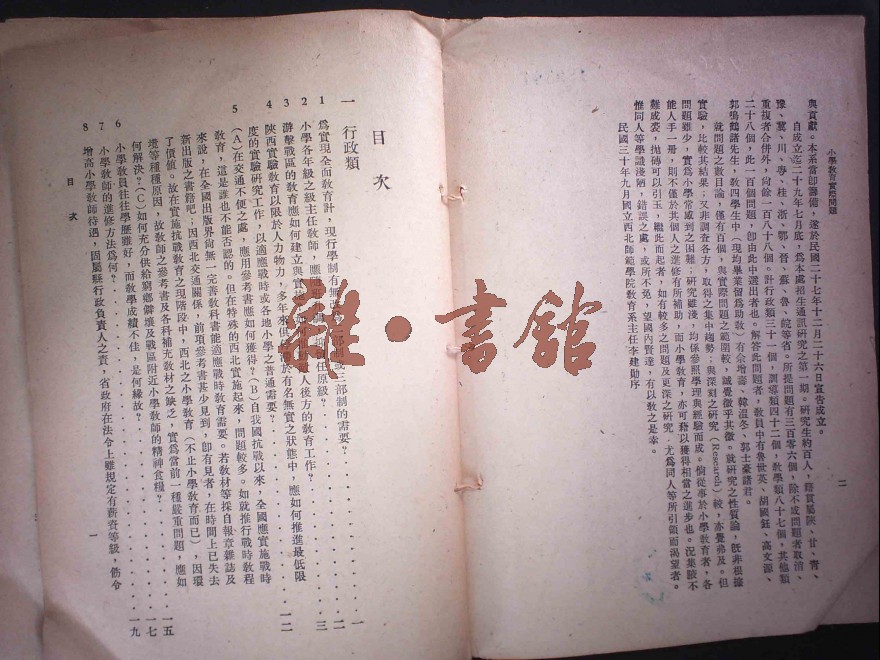 小學教育實際問題
二
與貢獻。本系當即籌備，遂於民國二十七年十二月二十六日宣告成立。
自成立迄二十九年七月底，為本處招生通訊研究之第一期。研究生約百人，籍貫屬陝、甘、青、
豫、冀、川、粵、桂、浙、鄂、晉、蘇、魯、皖等省。所提問題有三百零六個，除不成問題者取消、
重複者合併外，尚餘一百八十八個。計行政類三十一個，訓導類四十二個，教學類八十七個，其他類
二十八個，此一百個問題，卽由此中選出者也。解答此問題者，教員中有魯世英、胡國鈺、高文源、
郭鳴鶴諸先生，教四學生中（現均畢業留爲助教）有佘增壽、韓溫冬、郭士豪諸君。
就問題之數目論，僅有百個，與實際問題之範圍較，誠覺微乎其微。就研究之性質論，旣非根據
實驗，比較其結果；又非調查各方，取得之集中趨勢；與深刻之研究（Research）較，亦覺弗及。但
問題雖少，實爲小學常感到之困難；研究雖淺，均係參照學理與經驗而成。倘從事於小學教育者，各
能人手一冊，則不僅於其個人之進修有所補助，而小學教育，亦可藉以獲得相當之進步也。況集腋不
難成裘，拋磚可以引玉，繼此而起者，如有較多之問題及更深之研究，尤爲同人等所引領而渴望者。
惟同人等學識淺陋，錯誤之處，或所不免，望國內賢達，有以教之是幸。
民國三十年九月國立西北師範學院教育系主任李建勛序
目次
一 行政類
1 爲實現全面教育計，現行學制有無改 部制或三部制的需要？ 一
2 小學各年級之級主任教師，應隨 抑擔任原級？ 三
3 游擊戰區的教育應如何建立與實施 如何 敵人後方的教育工作？ 一二
4 陝西實驗教育以限於人力物力，多年來俱 於有名無實之狀態中，應如何推進最低限
度的實驗研究工作，以適應戰時或各地小學之普通需要？
5 （A）在交通不便之處，應用參考書應如何獲得？（B）自我國抗戰以來，全國應實施戰時
教育，這是誰也不能否認的。但在特殊的西北實施起來，問題較多。如就推行戰時教程
來說，在全國出版界尚無一完善教科書能適應戰時教育需要。若教材等採自報章雜誌及
新出版之書籍吧；因西北交通關係，前項參考書甚少見到，卽有見者，在時間上已失去
了價值。故在實施抗戰教育之現階段中，西北之小學教育（不止小學教育而已），因環
境等種種原因，故教師之參考書及各科補充教材之缺乏，實爲當前一種嚴重問題，應如
何解決？（C）如何充分供給窮鄉僻壤及戰區附近小學教師的精神食糧？ 一五
6 小學教員往往學歷雖好，而教學成績不佳，是何緣故？ 一七
7 小學教師的進修方法爲何？ 一九
8 增高小學教師待遇，固屬縣行政負責人之責，省政府在法令上雖規定有薪資等級，飭令
目次
一
雅·書館